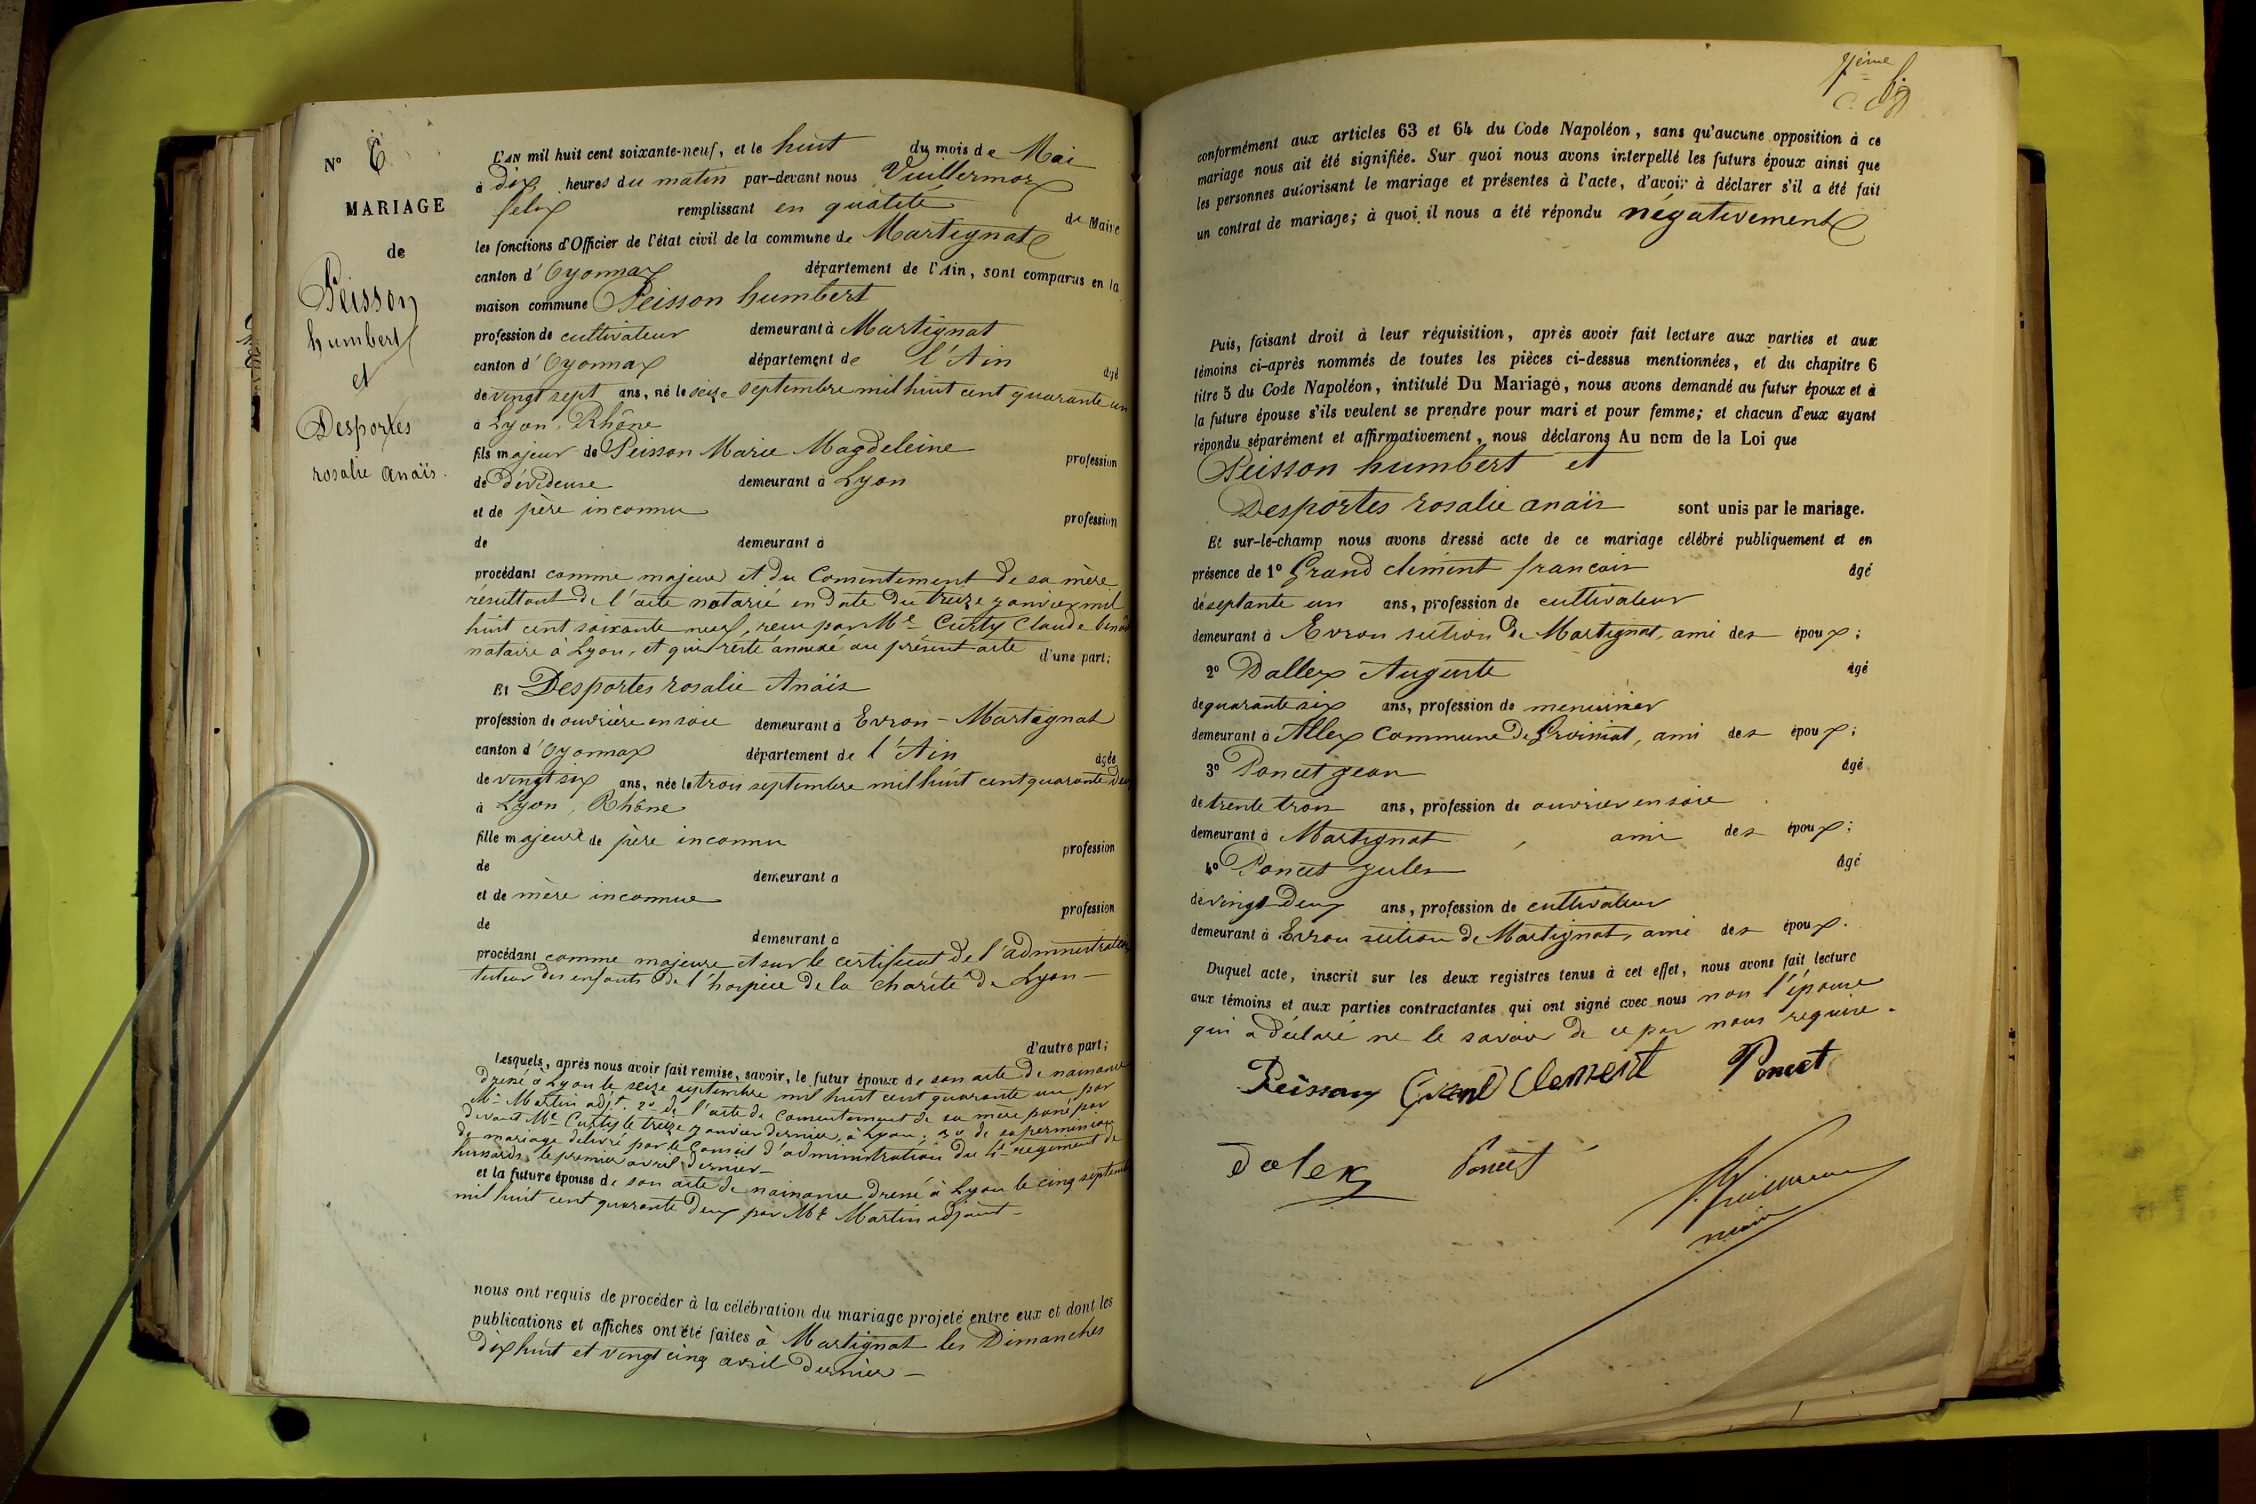 N° 6
MARIAGE
de
Peisson
humbert
et
Desportes
rosalie anaïs.
L'AN mil huit cent soixante-neuf, et le huit du mois de Mai
à dix heures du matin par-devant nous Vuillermoz
felix remplissant en qualité de Maire
les fonctions d'Officier de l'état civil de la commune de Martignat
canton d'Oyonnax département de l'Ain, sont comparus en la
maison commune Peisson humbert
profession de cultivateur demeurant à Martignat
canton d'Oyonnax département de l'Ain âgé
de vingt sept ans, né le seize septembre mil huit cent quarante un
à Lyon, Rhône
fils majeur de Peisson Marie Magdeleine profession
de Dévideuse demeurant à Lyon
et de père inconnu profession
de demeurant à
procédant comme majeur et du Consentement de sa mère
résultant de l'acte notarié en date du treize janvier mil
huit cent soixante neuf, reçu par Me Curty Claude
notaire à Lyon, et qui reste annexé au présent acte d'une part;
Et Desportes rosalie Anaïs
profession de ouvrière en soie demeurant à Evron - Martignat
canton d'Oyonnax département de l'Ain âgée
de vingt six ans, née le trois septembre mil huit cent quarante deux
à Lyon, Rhône
fille majeure de père inconnu profession
de demeurant à
et de mère inconnue profession
de demeurant à
procédant comme majeure et sur le certificat de l'administrateur
tuteur des enfants de l'hospice de la charité de Lyon —
d'autre part;
Lesquels, après nous avoir fait remise, savoir, le futur époux de son acte de naissance
dressé à Lyon le seize septembre mil huit cent quarante un par
Mr Martin adjt. 2° de l'acte de Consentement de sa mère passé par
devant Me Curty le treize janvier dernier, à Lyon; 3° de sa permission
de mariage délivré par le Conseil d'administration du 4e régiment de
hussards le premier avril dernier —
et la future épouse de son acte de naissance dressé à Lyon le cinq septembre
mil huit cent quarante deux par Mr Martin adjoint —
nous ont requis de procéder à la célébration du mariage projeté entre eux et dont les
publications et affiches ont été faites à Martignat les Dimanches
dix huit et vingt cinq avril dernier —
conformément aux articles 63 et 64 du Code Napoléon, sans qu'aucune opposition à ce
mariage nous ait été signifiée. Sur quoi nous avons interpellé les futurs époux ainsi que
les personnes autorisant le mariage et présentes à l'acte, d'avoir à déclarer s'il a été fait
un contrat de mariage; à quoi il nous a été répondu négativement
Puis, faisant droit à leur réquisition, après avoir fait lecture aux parties et aux
témoins ci-après nommés de toutes les pièces ci-dessus mentionnées, et du chapitre 6
titre 5 du Code Napoléon, intitulé Du Mariage, nous avons demandé au futur époux et à
la future épouse s'ils veulent se prendre pour mari et pour femme; et chacun d'eux ayant
répondu séparément et affirmativement, nous déclarons Au nom de la Loi que
Peisson humbert et
Desportes rosalie anaïs sont unis par le mariage.
Et sur-le-champ nous avons dressé acte de ce mariage célébré publiquement et en
présence de 1° Grand clément francois âgé
de septante un ans, profession de cultivateur
demeurant à Evron section de Martignat, ami des époux;
2° Dallex Auguste âgé
de quarante six ans, profession de menuisier
demeurant à Allex Commune de Groissiat, ami des époux;
3° Poncet jean âgé
de trente trois ans, profession de ouvrier en soie
demeurant à Martignat, ami des époux;
4° Poncet jules âgé
de vingt Deux ans, profession de cultivateur
demeurant à Evron section de Martignat, ami des époux.
Duquel acte, inscrit sur les deux registres tenus à cet effet, nous avons fait lecture
aux témoins et aux parties contractantes qui ont signé avec nous non l'épouse
qui a déclaré ne le savoir de ce par nous requise.
Peisson Grand Clement Poncet
Dalex Poncet
maire